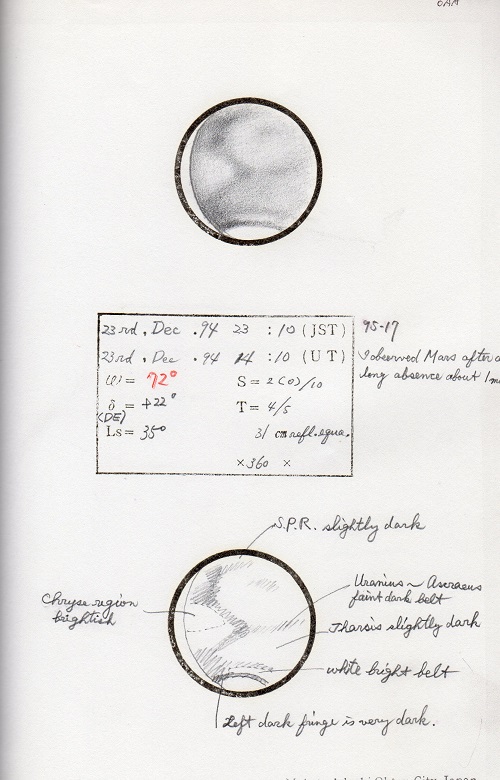 OAA
23rd. Dec .94 23 :10 (JST) 95-17
23rd. Dec .94 14 :10 (UT) I observed Mars after a
ω = 72° S = 2(0)/10 long absence about 1
δ = +22° T = 4/5
(DE)
Ls = 35° 31 cm refl.equa.
×360 ×
S.P.R. slightly dark
Uranius ~ Ascraeus
faint dark belt
Chryse region
brightish
Tharsis slightly dark
white bright belt
Left dark fringe is very dark.
City Japan